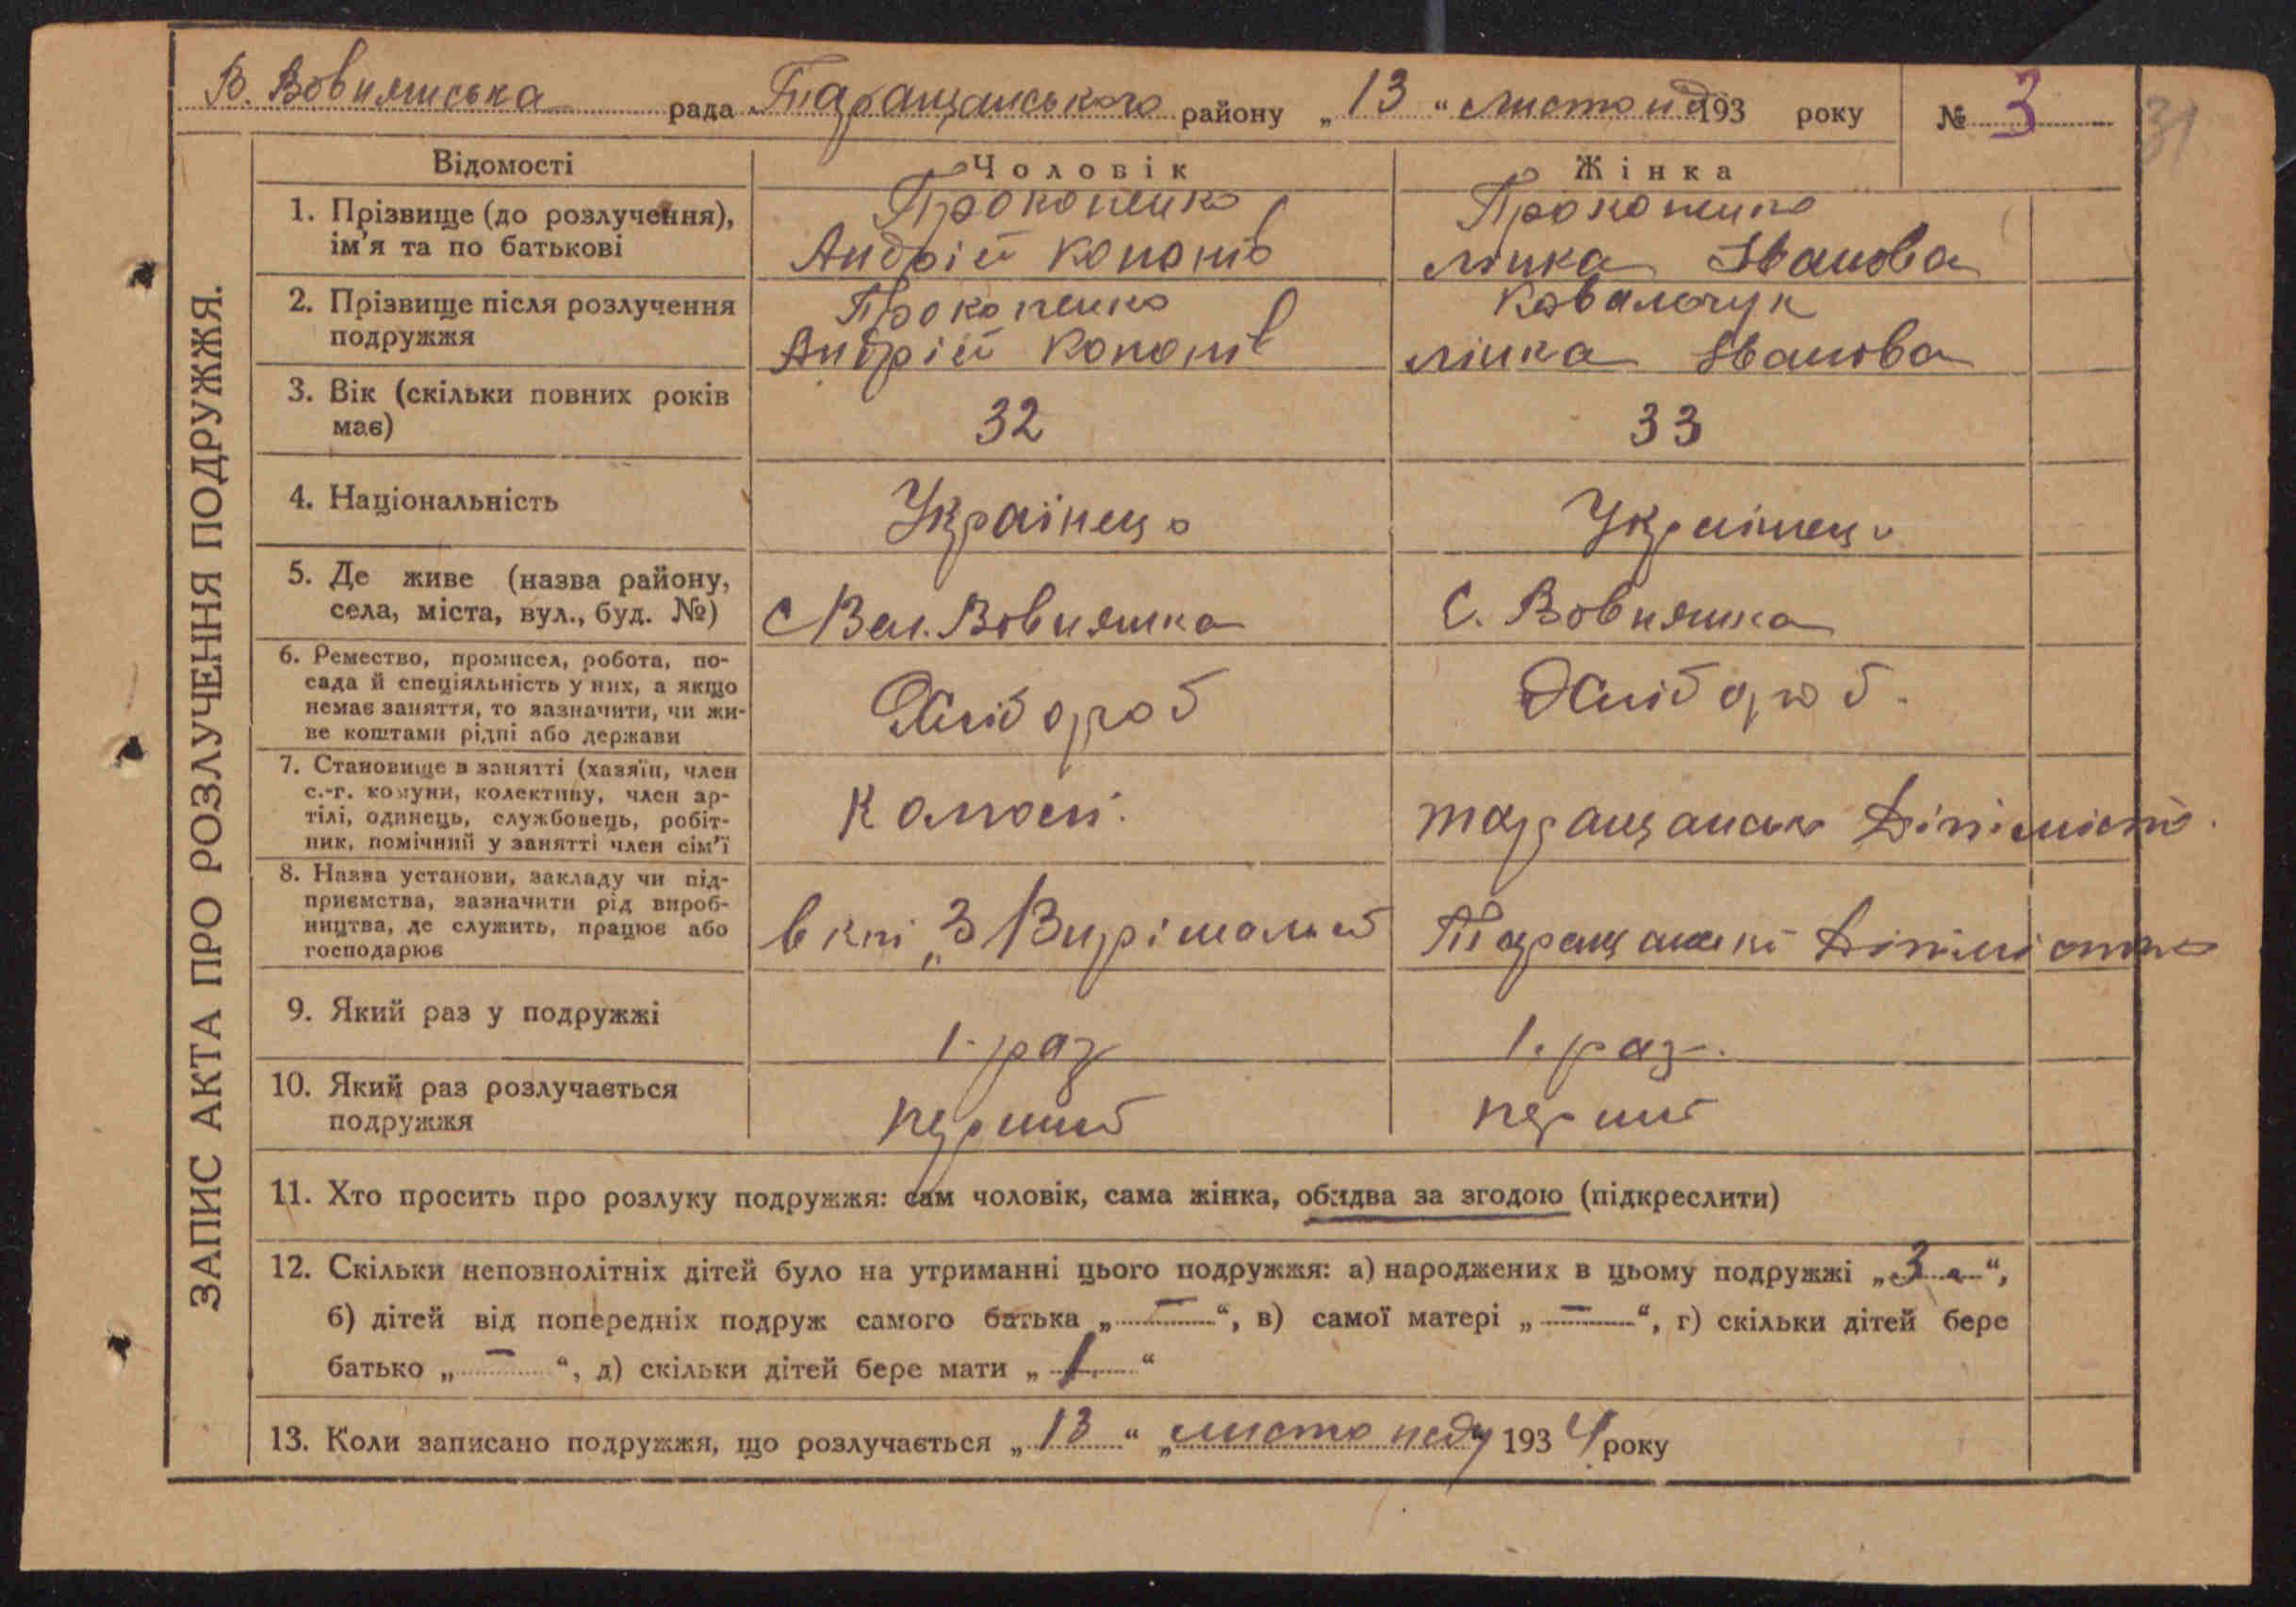 В. Вовнянська рада Таращанського району „ 13 “ листопад 193 року № 3
31
ЗАПИС АКТА ПРО РОЗЛУЧЕННЯ ПОДРУЖЖЯ.
Відомості Чоловік Жінка
1. Прізвище (до розлучення), ім'я та по батькові
Прокопенко
Андрій Кононів
Прокопенко
лінка Іванова
2. Прізвище після розлучення подружжя
Прокопенко
Андрій Кононів
Ковальчук
лінка Іванова
3. Вік (скільки повних років має)
32
33
4. Національність
Українець
Українець
5. Де живе (назва району, села, міста, вул., буд. №)
С Вел. Вовнянка
С. Вовнянка
6. Ремество, промисел, робота, по-
сада й спеціяльність у них, а якщо
немає заняття, то зазначити, чи жи-
ве коштами рідні або держави
Хлібороб
Хлібороб.
7. Становище в занятті (хазяїн, член
с.-г. комуни, колективу, член ар-
тілі, одинець, службовець, робіт-
ник, помічний у занятті член сім'ї
8. Назва установи, закладу чи під-
приємства, зазначити рід вироб-
ництва, де служить, працює або
господарює
9. Який раз у подружжі
1. раз
1. раз.
10. Який раз розлучається подружжя
перший
перший
11. Хто просить про розлуку подружжя: сам чоловік, сама жінка, обидва за згодою (підкреслити)
12. Скільки неповнолітніх дітей було на утриманні цього подружжя: а) народжених в цьому подружжі „ 3 “,
б) дітей від попередніх подруж самого батька „ — “, в) самої матері „ — “, г) скільки дітей бере
батько „ — “, д) скільки дітей бере мати „ 1 “
13. Коли записано подружжя, що розлучається „ 13 “ „ листопаду 193 4 року